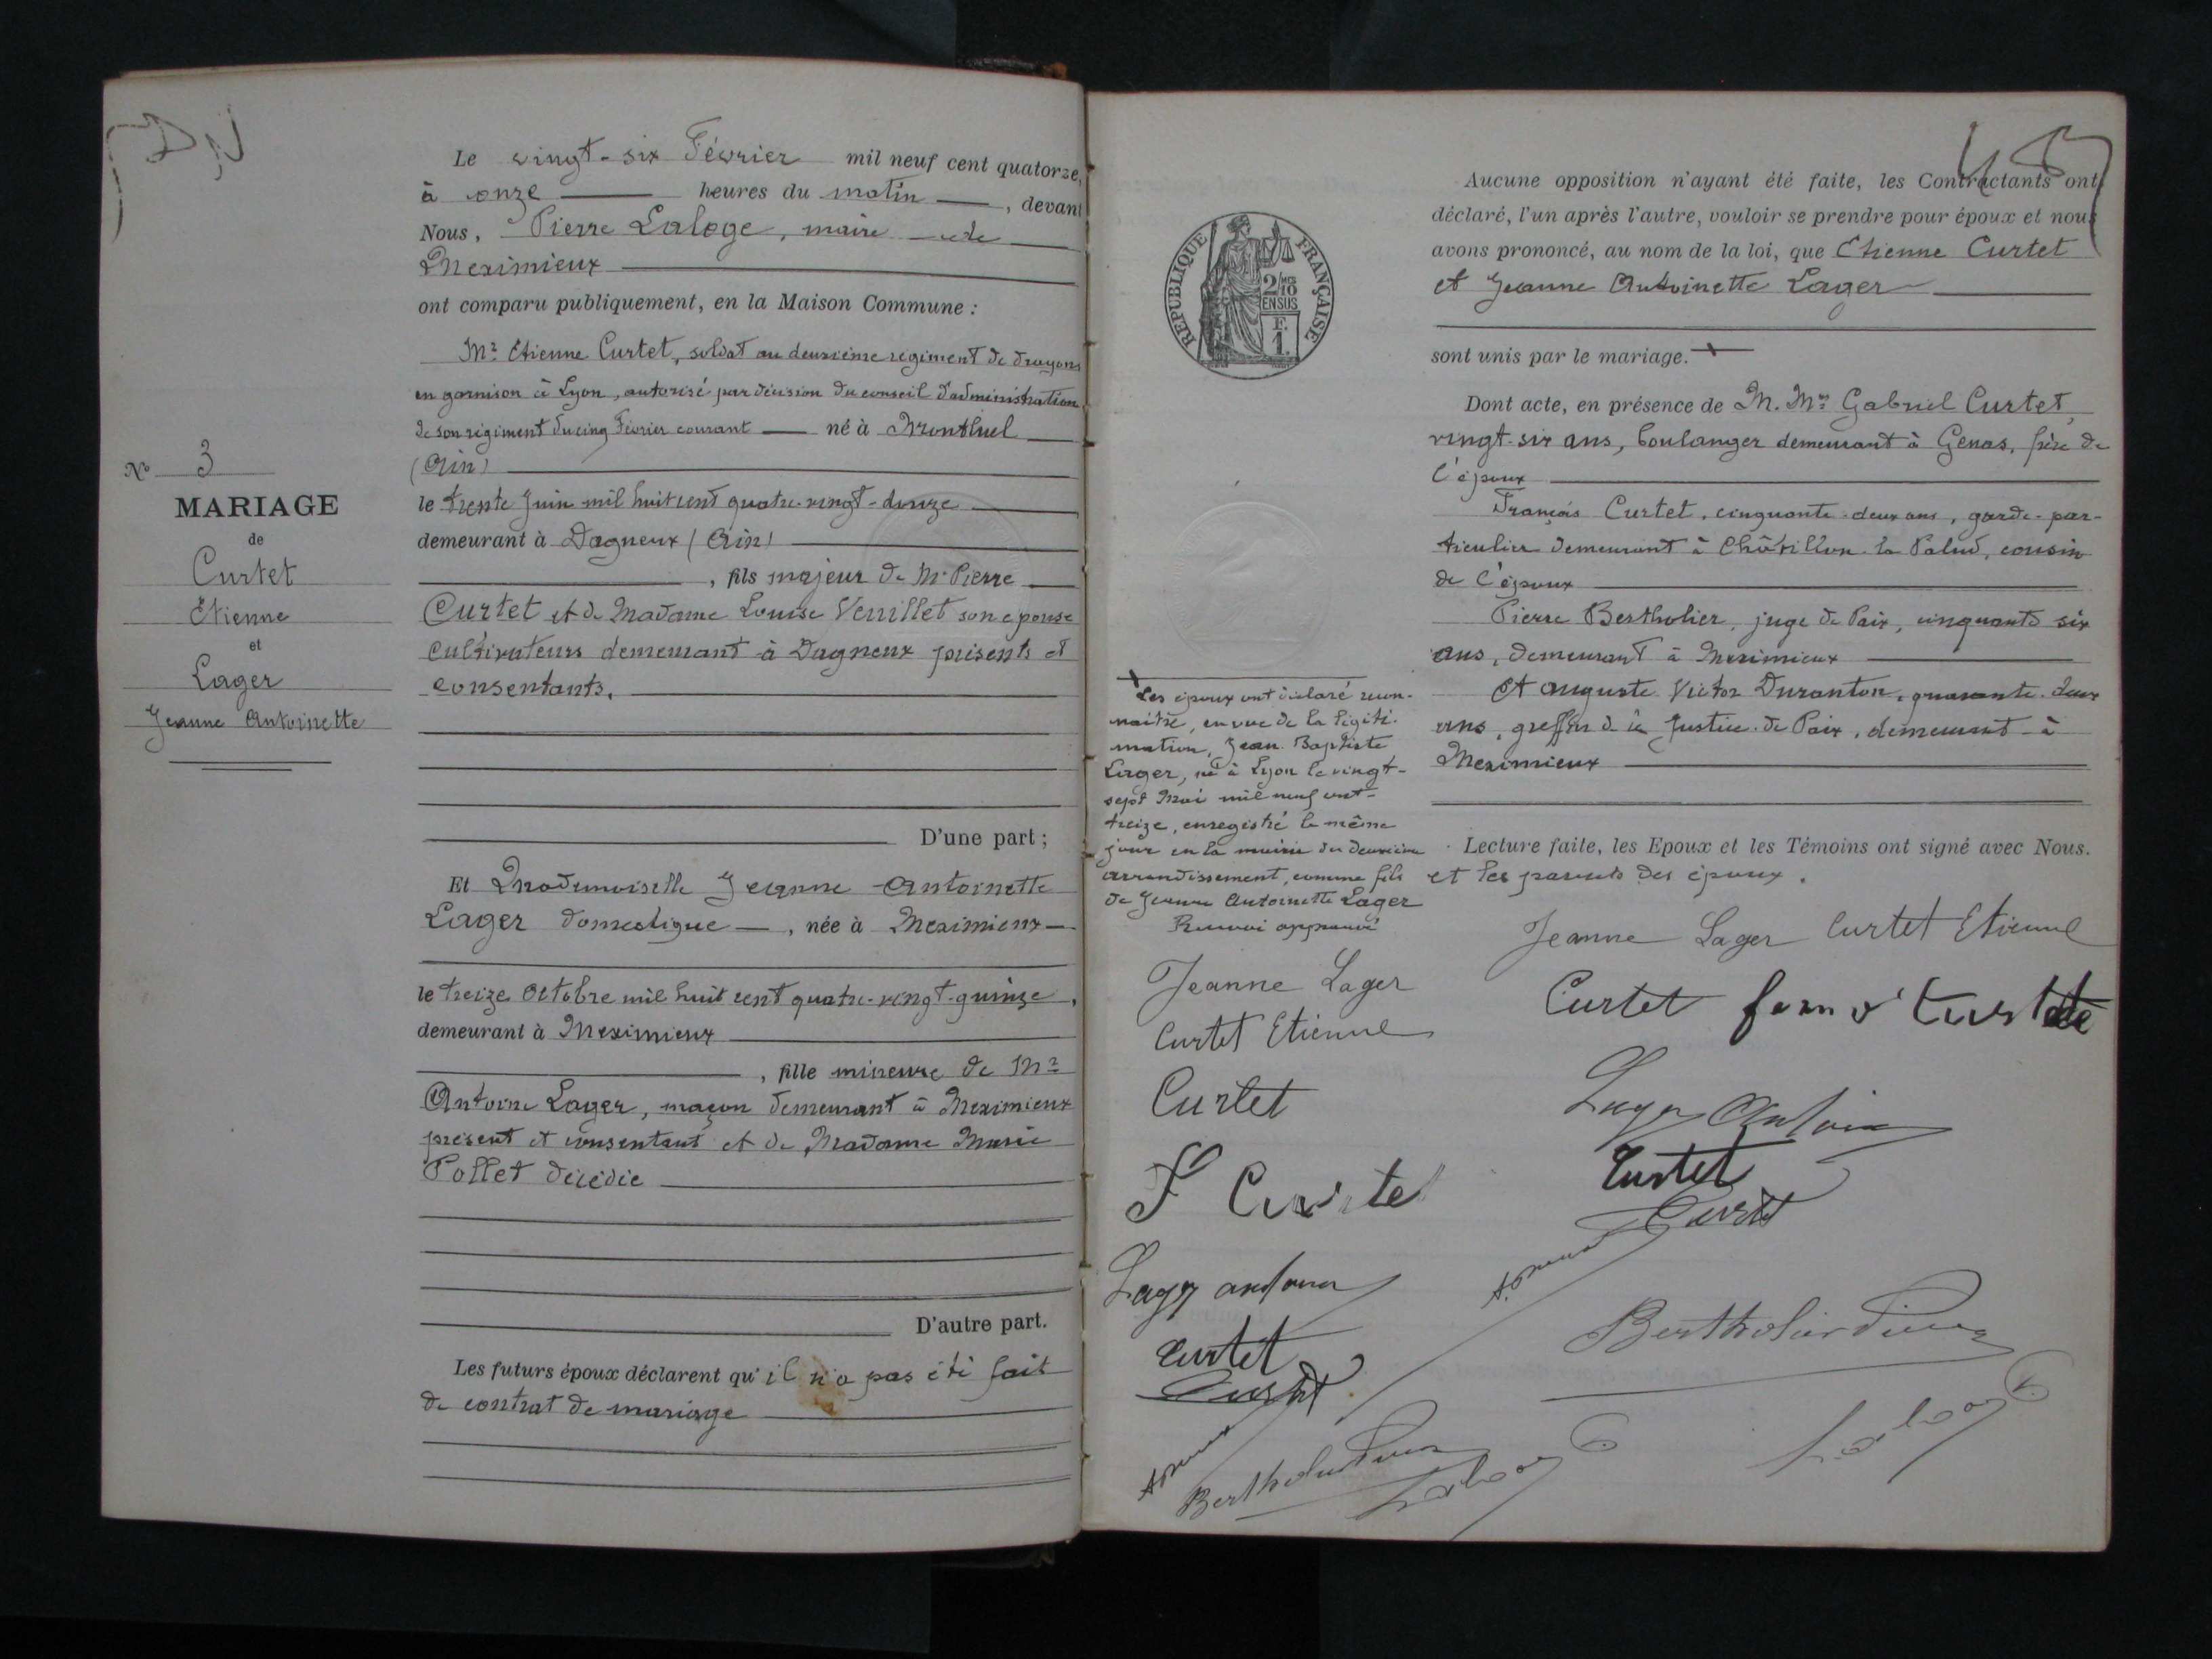 N° 3
MARIAGE
de
Curtet
Etienne
et
Lager
Jeanne Antoinette
Le vingt-six Février mil neuf cent quatorze,
à onze heures du matin, devant
Nous, Pierre Laloge, maire de
Meximieux
ont comparu publiquement, en la Maison Commune :
Mr Etienne Curtet, soldat au deuxième régiment de dragons
en garnison à Lyon, autorisé par décision du conseil d'administration
de son régiment du cinq Février courant né à Montluel
(Ain)
le trente Juin mil huit cent quatre-vingt-douze
demeurant à Dagneux (Ain)
, fils majeur de Mr Pierre
Curtet et de Madame Louise Veuillet son épouse
cultivateurs demeurant à Dagneux présents et
consentants.
D'une part ;
Et Mademoiselle Jeanne Antoinette
Lager domestique, née à Meximieux
le treize Octobre mil huit cent quatre-vingt-quinze,
demeurant à Meximieux
, fille mineure de Mr
Antoine Lager, maçon demeurant à Meximieux
présent et consentant et de Madame Marie
Pollet décédée
D'autre part.
Les futurs époux déclarent qu'il n'a pas été fait
de contrat de mariage
REPUBLIQUE FRANÇAISE
2/10
EN SUS
F.
1.
Les époux ont déclaré recon-
naitre, en vue de la légiti-
mation, Jean Baptiste
Lager, né à Lyon le vingt-
sept Mai mil neuf cent-
treize, enregistré le même
jour en la mairie du deuxième
arrondissement, comme fils
de Jeanne Antoinette Lager
Renvoi approuvé
Jeanne Lager
Curtet Etienne
Curtet
F Curtet
Lager antoine
Curtet
Curtet
Bertholier Pierre
Laloge
Aucune opposition n'ayant été faite, les Contractants ont
déclaré, l'un après l'autre, vouloir se prendre pour époux et nous
avons prononcé, au nom de la loi, que Etienne Curtet
et Jeanne Antoinette Lager
sont unis par le mariage.
Dont acte, en présence de M. Mrs Gabriel Curtet,
vingt-six ans, boulanger demeurant à Genas, frère de
l'époux
François Curtet, cinquante-deux ans, garde-par-
ticulier demeurant à Châtillon la Palud, cousin
de l'époux
Pierre Bertholier, juge de Paix, cinquante six
ans, demeurant à Meximieux
Et Auguste Victor Duranton, quarante-deux
ans, greffier de la Justice de Paix, demeurant à
Meximieux
Lecture faite, les Epoux et les Témoins ont signé avec Nous.
et les parents des époux.
Jeanne Lager Curtet Etienne
Curtet Curtet
Lager Antoine
Curtet
Curtet
Bertholier Pierre
Laloge